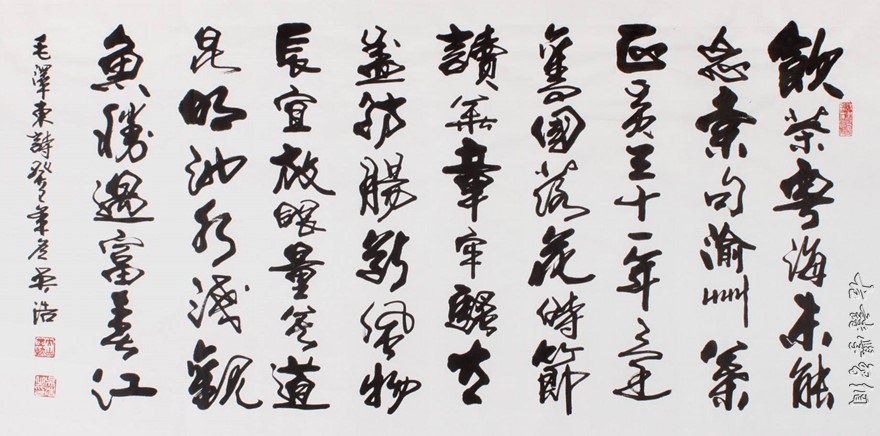 飲茶粵海未能
忘索句渝州葉
正黃三十一年還
舊國落花時節
讀華章牢騷太
盛防腸斷風物
長宜放眼量莫道
昆明池水淺觀
魚勝過富春江
毛澤東詩癸巳年浩